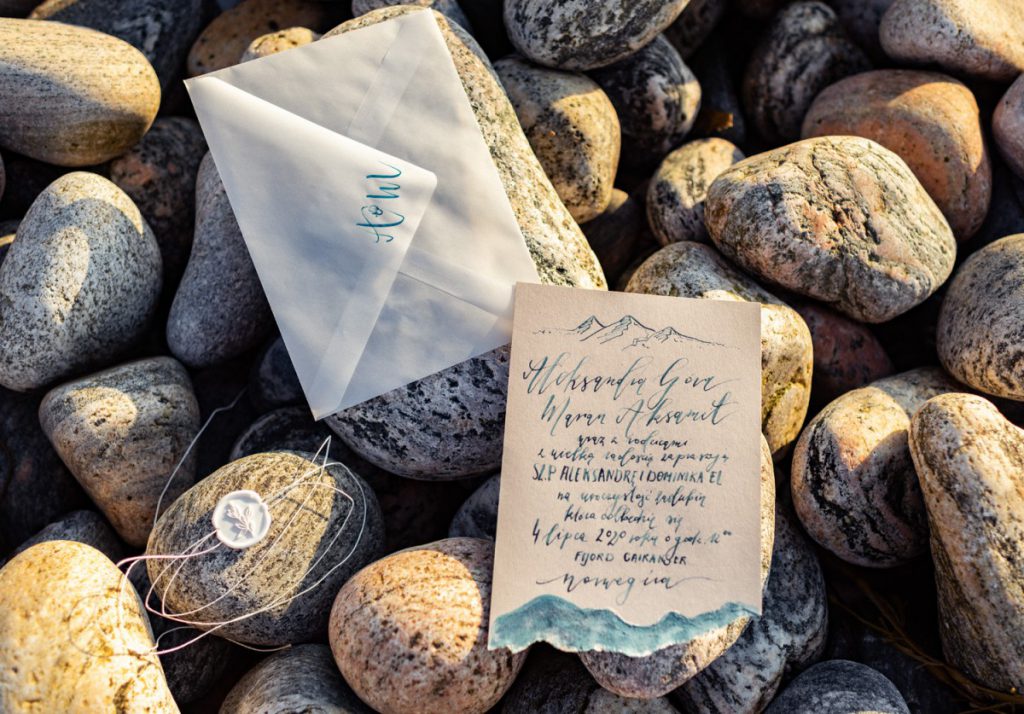 A&M
Aleksandra Gora
Marcin Aksamit
wraz z rodzicami
z wielką radością zapraszają
SZ.P ALEKSANDRĘ I DOMINIKA EL
na uroczystość zaślubin
która odbędzie się
4 lipca 2020 roku o godz. 12⁰⁰
FIJORD GAIRANGER
Norwegia